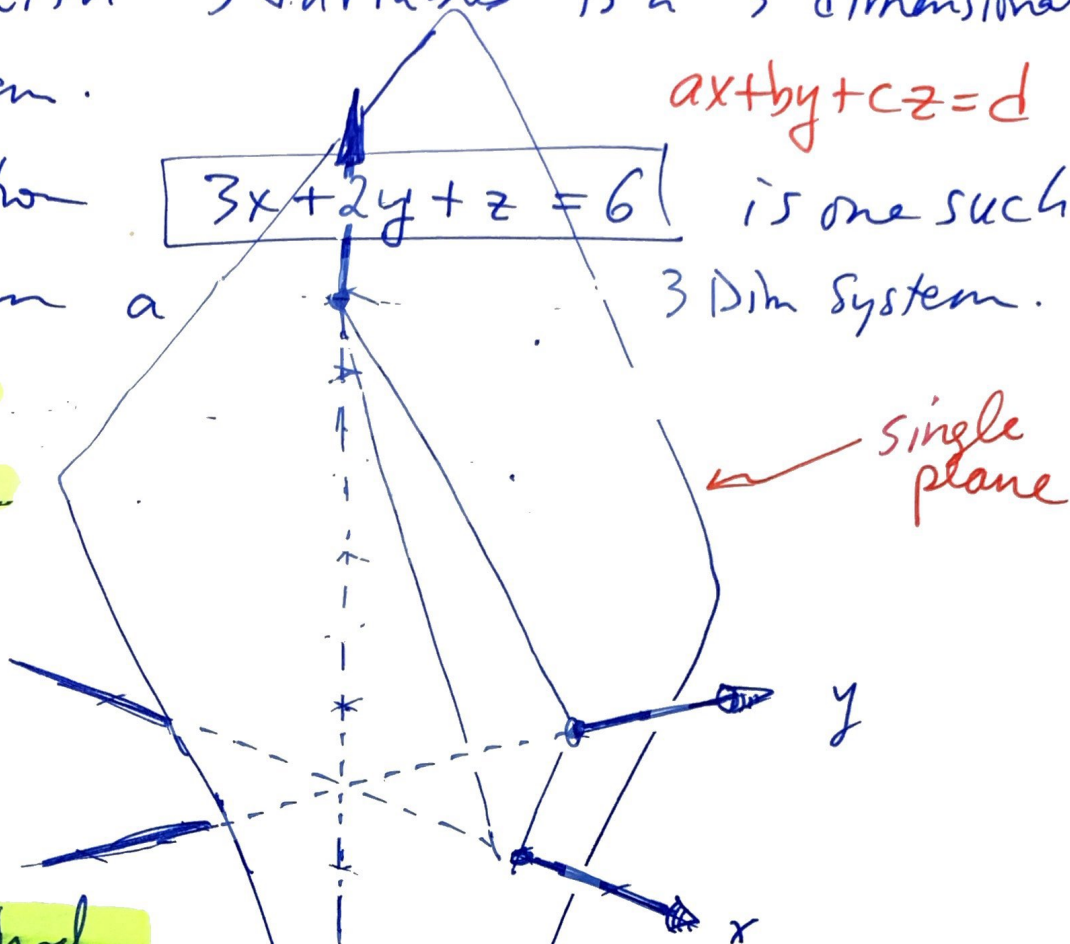 is a 3 dimensional
ax+by+cz=d
3x+2y+z=6
is one such
a
3 Dim System.
single
plane
y
x